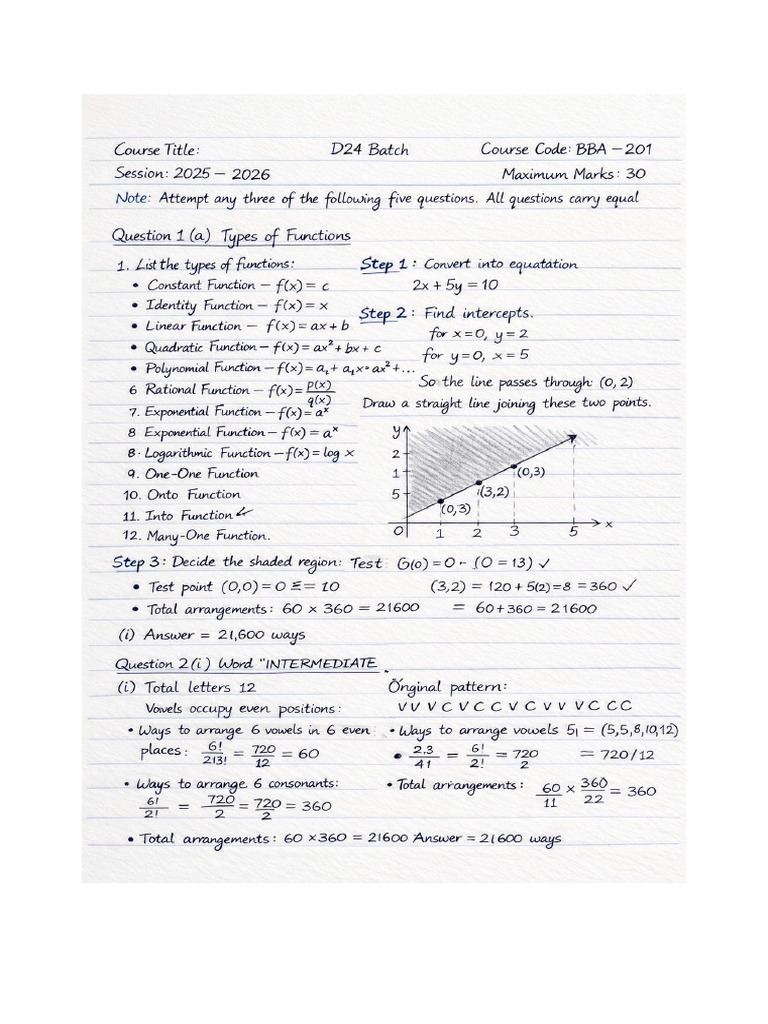 Course Title: D24 Batch Course Code: BBA – 201
Session: 2025 – 2026 Maximum Marks: 30
Note: Attempt any three of the following five questions. All questions carry equal
Question 1 (a) Types of Functions
1. List the types of functions:
• Constant Function – f(x) = c
• Identity Function – f(x) = x
• Linear Function – f(x) = ax + b
• Quadratic Function – f(x) = ax² + bx + c
• Polynomial Function – f(x) = a₁ + a₁x · ax² + ...
6 Rational Function – f(x) = p(x)/q(x)
7. Exponential Function – f(x) = aˣ
8 Exponential Function – f(x) = aˣ
8. Logarithmic Function – f(x) = log x
9. One-One Function
10. Onto Function
11. Into Function
12. Many-One Function.
Step 1: Convert into equatation
2x + 5y = 10
Step 2: Find intercepts.
for x = 0, y = 2
for y = 0, x = 5
So the line passes through: (0, 2)
Draw a straight line joining these two points.
y
2
1
5
(0,3)
(3,2)
(0,3)
0 1 2 3 5 x
Step 3: Decide the shaded region: Test G(0) = 0 – (0 = 13) ✓
• Test point (0,0) = 0 = 10 (3,2) = 120 + 5(2) = 8 = 360 ✓
• Total arrangements: 60 × 360 = 21600 = 60 + 360 = 21600
(i) Answer = 21,600 ways
Question 2 (i) Word "INTERMEDIATE
(i) Total letters 12
Vowels occupy even positions:
• Ways to arrange 6 vowels in 6 even
places: 6!/2!3! = 720/12 = 60
• Ways to arrange 6 consonants:
6!/2! = 720/2 = 720/2 = 360
Original pattern:
V V V C V C C V C V V V C C C
• Ways to arrange vowels 5! = (5,5,8,10,12)
• 2,3/4! = 6!/2! = 720/2 = 720/12
• Total arrangements: 60/11 × 360/22 = 360
• Total arrangements: 60 × 360 = 21600 Answer = 21600 ways